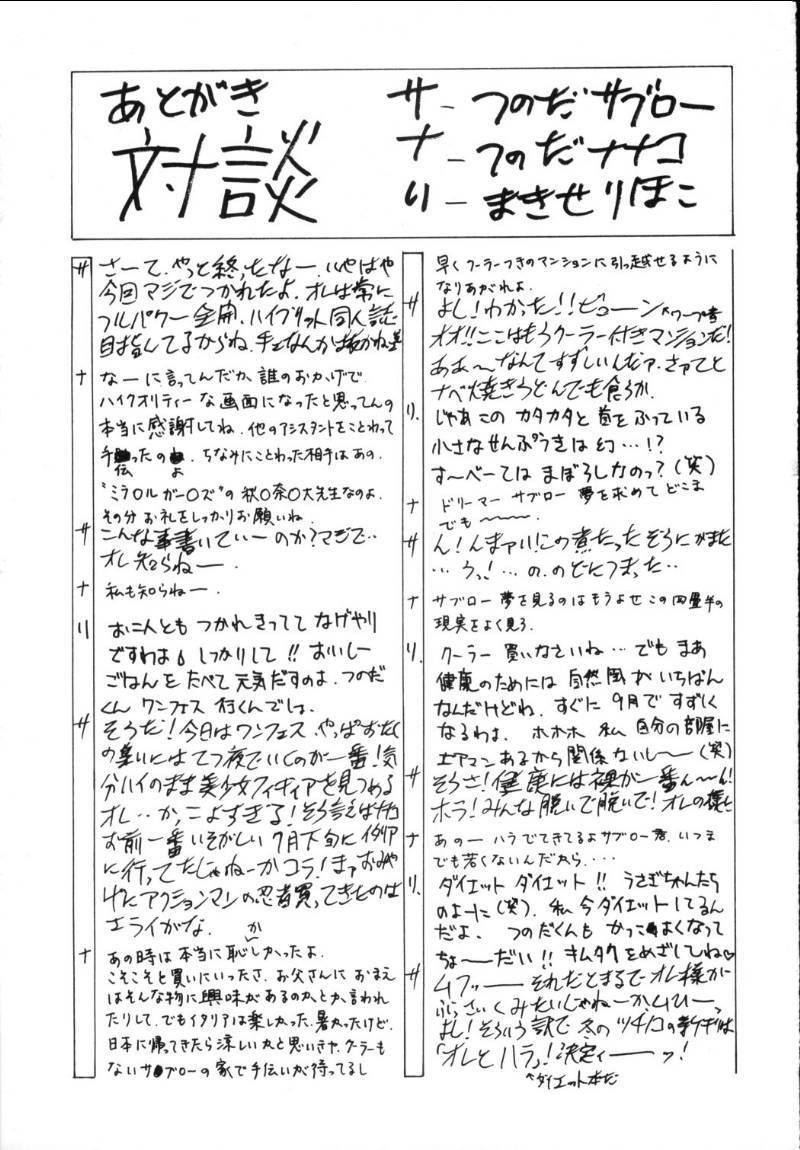 あとがき
対談
サ－つのだサブロー
ナ－つのだナナコ
リ－まきせりほこ
サ さーて、やっと終ったなー、いやはや
今回マジでつかれたよ。オレは常に
フルパワー全開、ハイブリット同人誌
目指してるからね、手なんかは抜かねェ
ナ なーに言ってんだか、誰のおかげで
ハイクオリティーな画面になったと思ってんの
本当に感謝してね。他のアシスタントをことわって
手伝ったのよ。ちなみにことわった相手はあの、
"ミラ〇ルガー〇ズ"の秋〇奈〇大先生なのよ。
その分お礼をしっかりお願いね。
サ こんな事書いていーのか?マジで‥
オレ知らねー。
ナ 私も知らねー。
リ お二人とも つかれきってて なげやり
ですわよ。しっかりして!! おいしー
ごはんをたべて元気だすのよ。つのだ
くん ワンフェス 行くんでしょ。
サ そうだ!今日はワンフェス、やっぱおたく
の集いにはてつ夜でいくのが一番!気
分ハイのまま美少女フィギィアを見つめる
オレ‥かっこよすぎる!そう言えばナナコ
お前一番いそがしい7月下旬にイタリア
に行ってたじゃねーかコラ!まァおみや
げにアクションマンの忍者買ってきたのは
エライがな。
ナ あの時は本当に恥かしかったよ。
こそこそと買いにいったさ、お父さんにおまえ
はそんな物に興味があるのかとか言われ
たりして、でもイタリアは楽しかった、暑かったけど、
日本に帰ってきたら涼しいかと思いきや、クーラーも
ないサブローの家で手伝いが待ってるし
早くクーラーつきのマンションに引っ越せるように
なりあがれよ。
サ よし!わかった!!ビューン←ワープ音
オオ!!ここはもうクーラー付きマンションだ!
ああ〜なんてすずしいんだァ、さァてと
ナベ焼きうどんでも食うか。
リ じゃあこの カタカタと首をふっている
小さなせんぷうきは幻…!?
す〜べーては まぼろしなのっ?(笑)
ナ ドリーマー サブロー 夢を求めてどこま
でも〜〜〜。
サ ん!んまァい!この煮たったぞうにがまた
…うっ!…の、のどにつまった‥
ナ サブロー 夢を見るのはもうよせ この四畳半の
現実をよく見ろ。
リ クーラー 買いなさいね… でも まあ
健康のためには 自然風がいちばん
なんだけどね。すぐに 9月で すずしく
なるわよ。ホホホ 私 自分の部屋に
エアマンあるから関係ないし〜(笑)
サ そうさ!健康には裸が一番ん〜ん!
ホラ!みんな脱いで脱いで!オレの様に
ナ あのー ハラでてきてるよサブロー君、いつま
でも若くないんだから‥‥
リ ダイエット ダイエット!! うさぎちゃんたち
のよーに(笑)。私今ダイエットしてるん
だよ、つのだくんも かっこよくなって
ちょ〜だい!! キムタクをめざしてね♡
サ ムフッーー それだとまるでオレ様が
ぶさいくみたいじゃねーか、ムヒーッ
よし!そういう訳で 冬の ツチノコの新ケギは
「オレとハラ」!決定ィーーッ!
↑ダイエット本だ